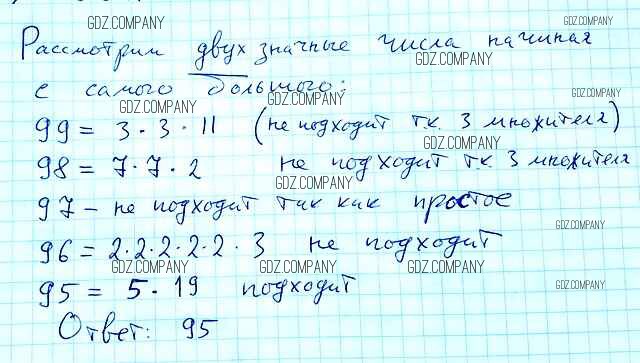 GDZ.COMPANY GDZ.COMPANY
Рассмотрим двух значные числа начиная
GDZ.COMPANY
с самого большого:
GDZ.COMPANY GDZ.COMPANY GDZ.COMPANY
99 = 3 · 3 · 11 (не подходит т.к. 3 множителя)
GDZ.COMPANY
98 = 7 · 7 · 2 не подходит т.к. 3 множителя
GDZ.COMPANY
97 - не подходит так как простое
GDZ.COMPANY
96 = 2·2·2·2·2·3 не подходит
GDZ.COMPANY GDZ.COMPANY GDZ.COMPANY
95 = 5 · 19 подходит
GDZ.COMPANY
Ответ: 95